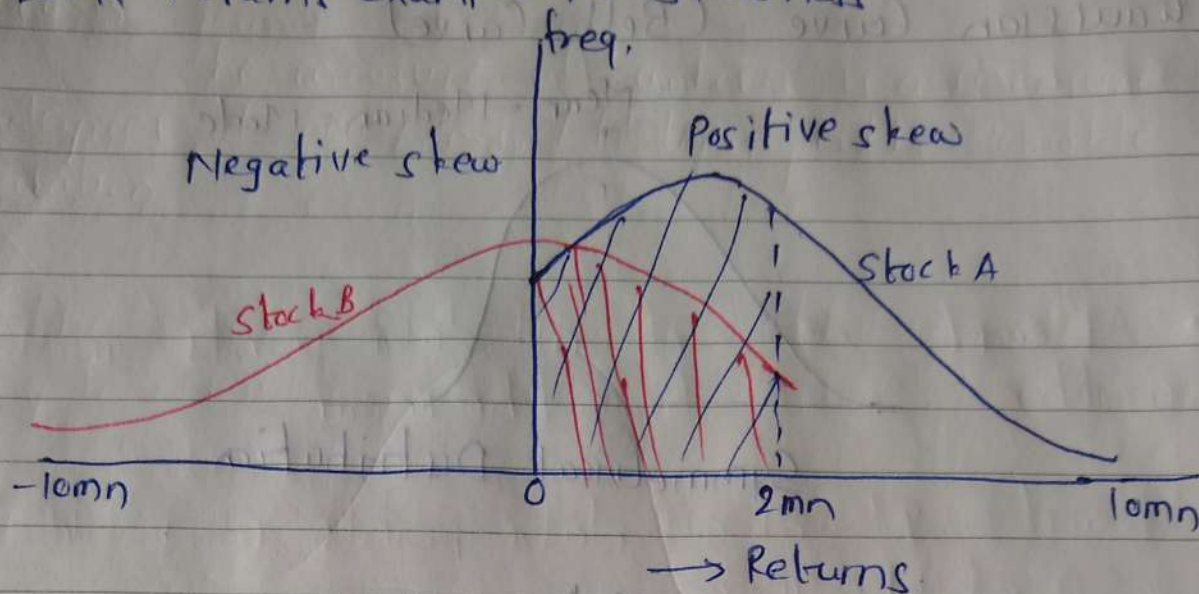 freq.
Positive skew
Negative skew
Stock A
Stock B
-10mn
0
2mn
10mn
→ Returns